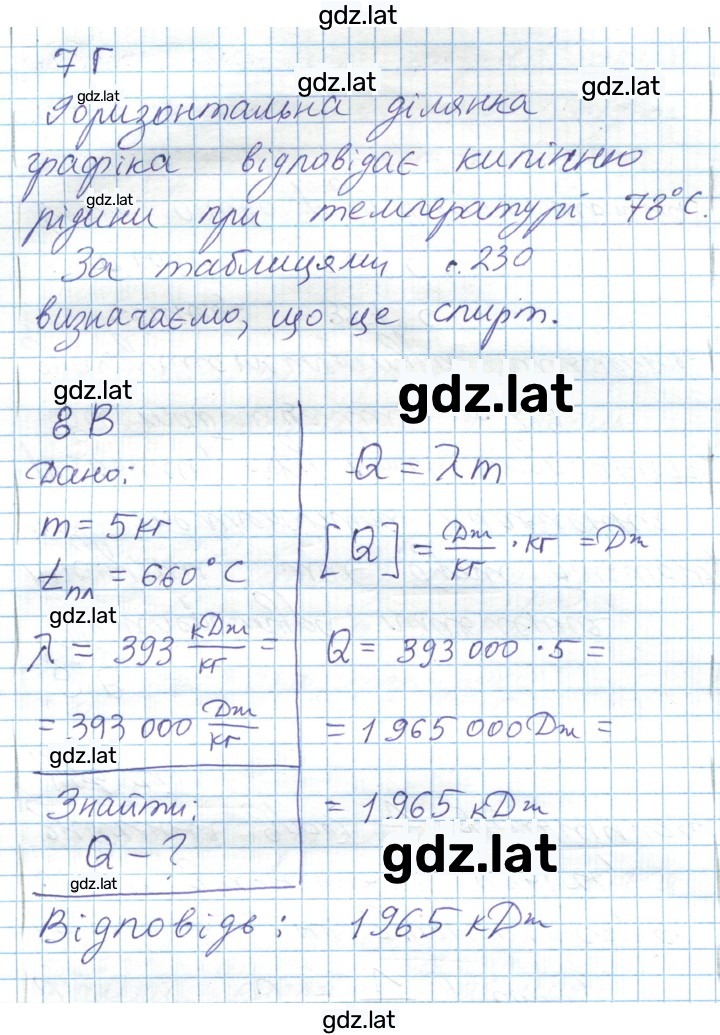 gdz.lat
7 Г
gdz.lat
gdz.lat
gdz.lat
Горизонтальна ділянка
графіка відповідає кипінню
gdz.lat
рідини при температурі 78°С.
За таблицями с. 230
визначаємо, що це спирт.
gdz.lat
gdz.lat
8 В
Дано:
m = 5 кг
tпл = 660°С
gdz.lat
λ = 393 кДж/кг =
= 393 000 Дж/кг
gdz.lat
Знайти:
Q - ?
gdz.lat
Q = λm
[Q] = Дж/кг · кг = Дж
Q = 393 000 · 5 =
= 1 965 000 Дж =
= 1 965 кДж
gdz.lat
Відповідь: 1965 кДж
gdz.lat